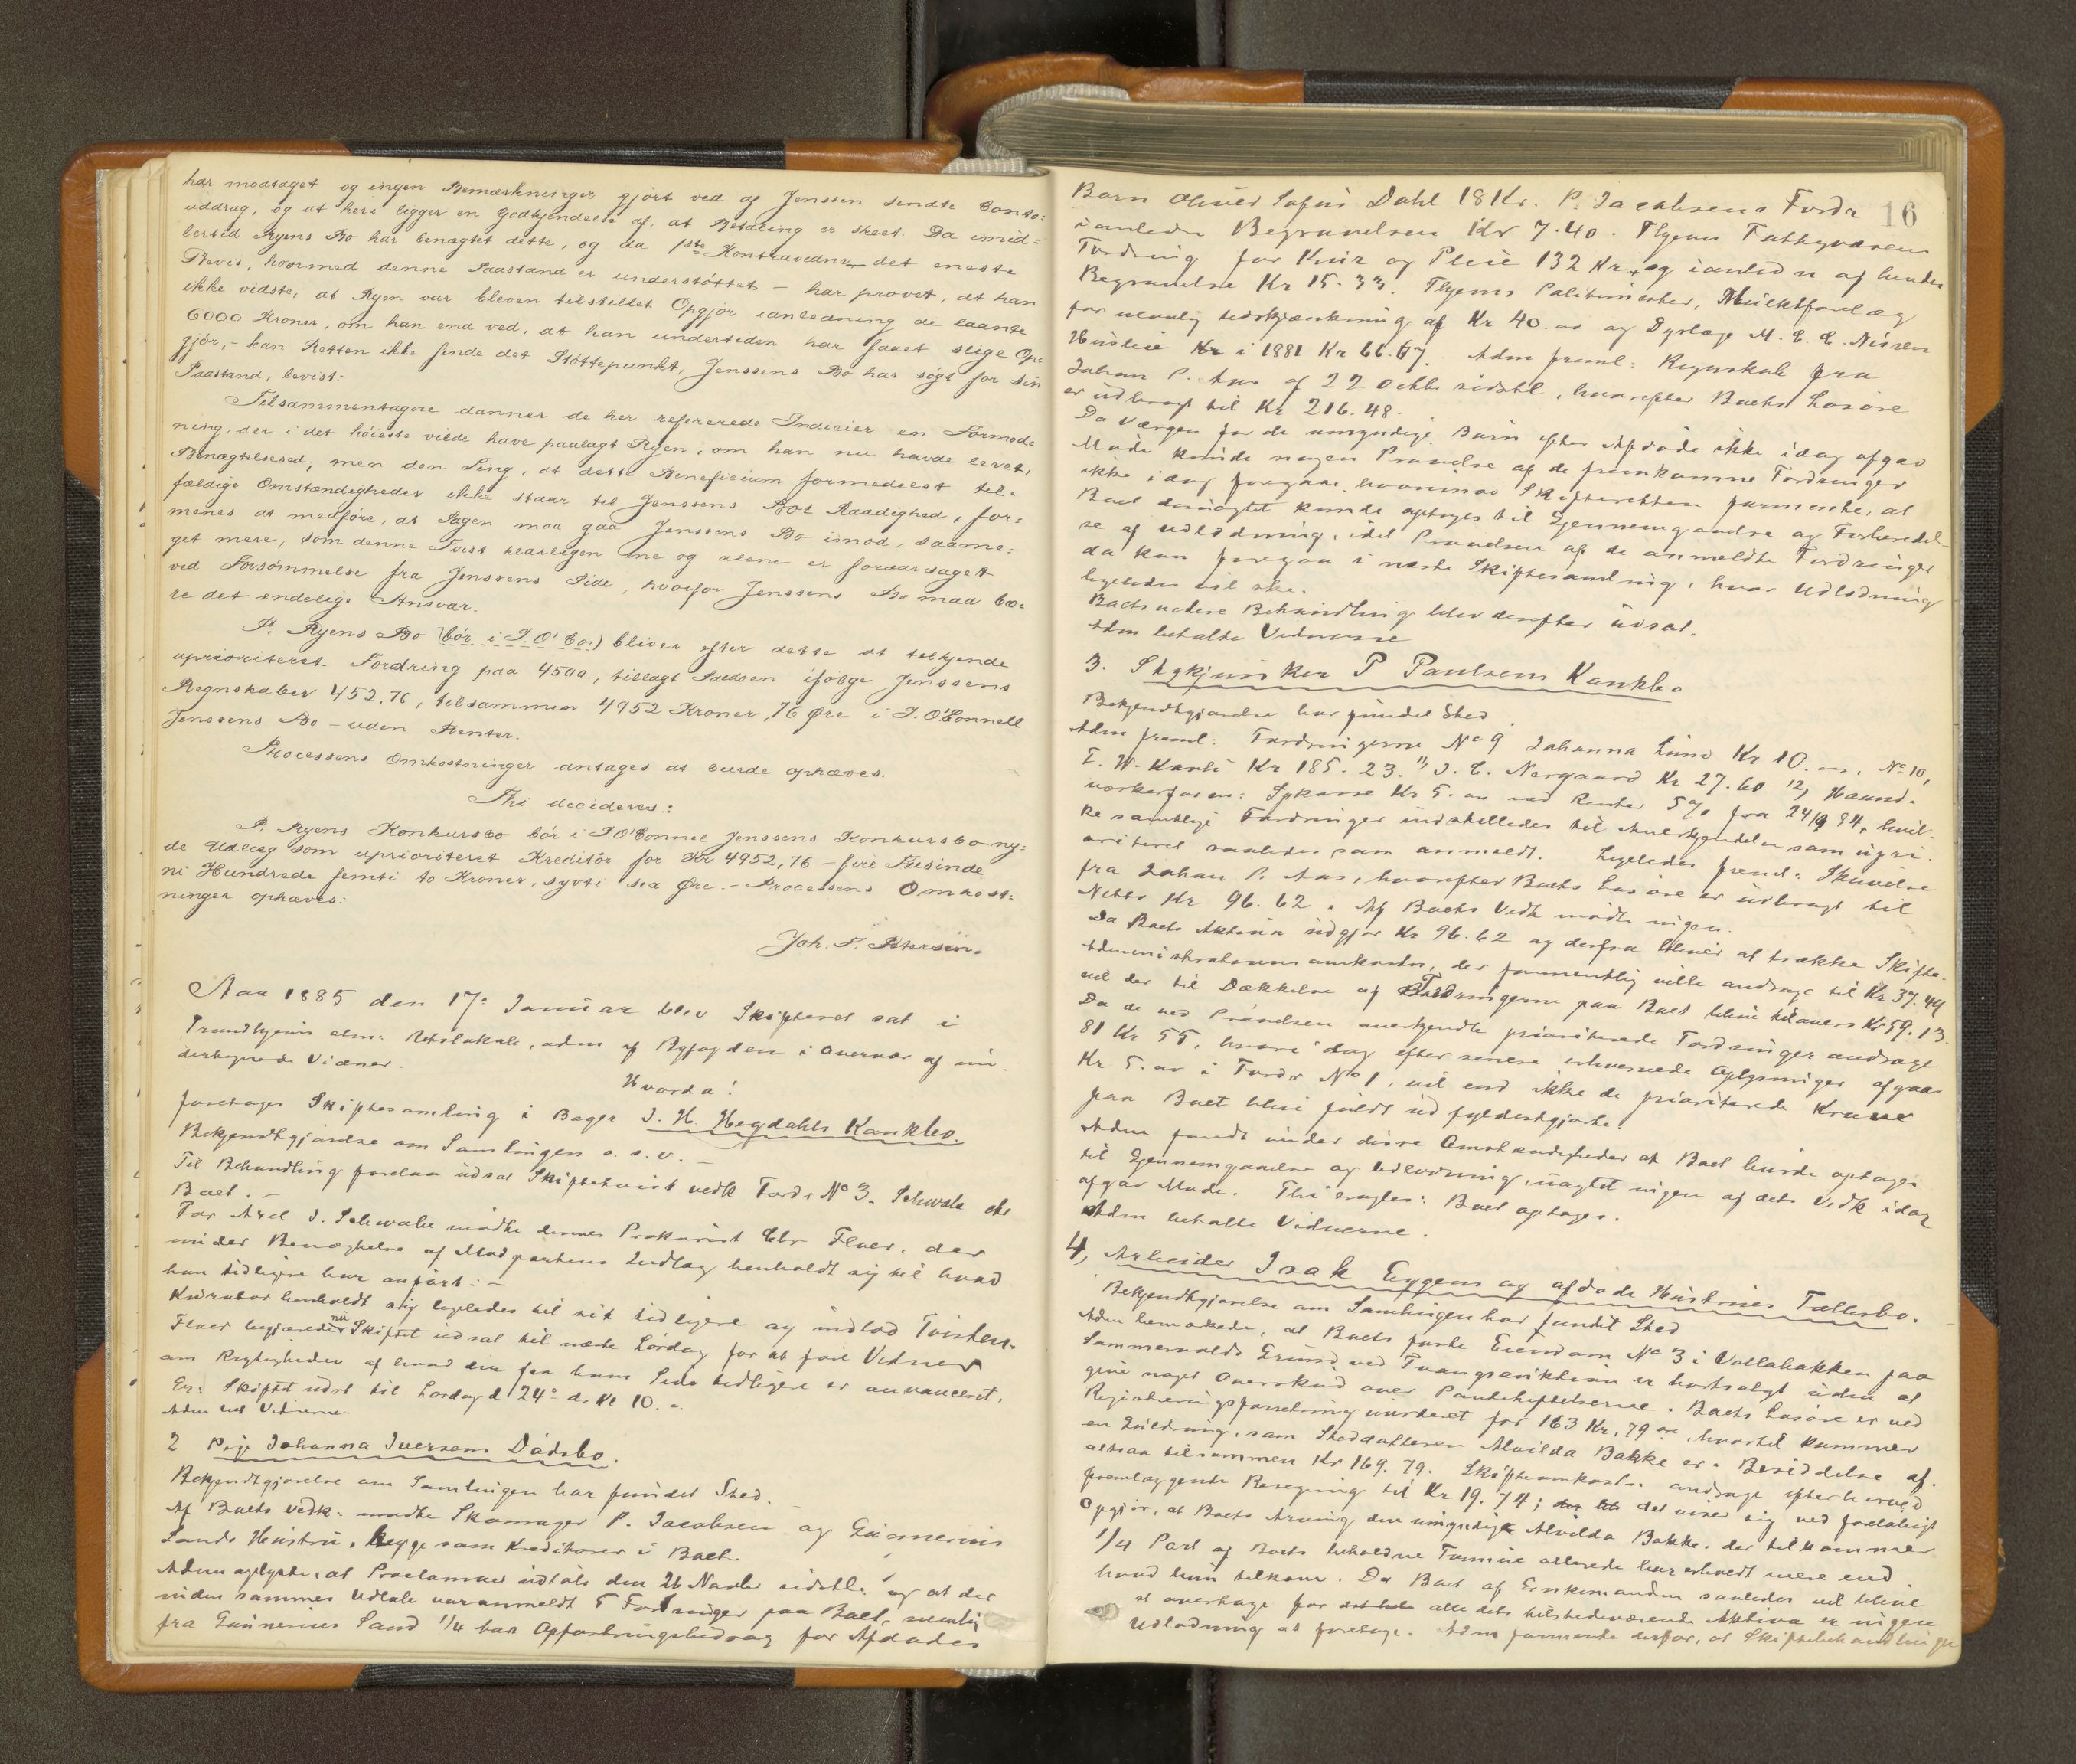 har modsaget og ingen Bemærkninger gjort ved af Jenssen sendte Conto-
uddrag, og at heri ligger en Godkjendelse af, at Betaling er skeet. Da imid=
lertid Ryens Bo har benægtet dette, og da 1ste Kontravidne det eneste
Bevis, hvormed denne Paastand er understøttet - har provet, at han
ikke vidste, at Ryen var bleven tilstillet Opgjør ianledning de laante
6000 Kroner, om han end ved, at han undertiden har faaet slige Op=
gjør, - kan Retten ikke finde det Støttepunkt, Jenssens Bo har søgt for sin
Paastand, bevist:
Tilsammentagne danner de her refererede Indicier en Formod
ning, der i det høieste vilde have paalagt Ryen, om han nu havde levet,
Benægtelsesed; men den Ting, at dette Beneficium formedelst til-
fældige Omstændigheder ikke staar til Jenssens Bos Raadighed, for=
menes at medføre, at Sagen maa gaa Jenssens Bo imod, saame=
get mere, som denne Tvist klarligen ene og alene er foraarsaget
ved Forsømmelse fra Jenssens Side, hvorfor Jenssens Bo maa bæ=
re det endelige Ansvar.
P. Ryens Bo (bør i J. O' Co:) bliver efter dette at tilkjende
uprioriteret Fordring paa 4500, tillagt Saldoen ifølge Jenssens
Regnskaber 452,76, tilsammen 4952 Kroner, 76 Øre i J. O'Connell
Jenssens Bo - uden Renter.
Processens Omkostninger antages at burde ophæves.
Thi decideres:
P. Ryens Konkursbo bør i J O'Connel Jenssens Konkursbo ny=
de Udlæg som uprioriteret Kreditor for Kr 4952,76 - fire Tusinde
ni Hundrede femti to Kroner, sytti sex Øre. - Processens Omkost=
ninger ophæves:
Joh. F. Petersen.
Aar 1885 den 17de Januar blev Skifteret sat i
Trondhjems alm: Retslokale, adm af Byfogden i Overvær af un-
dertegnede Vidner.
Hvorda!
foretoges Skiftesamling i Bager J. H. Hegdahls Konkbo.
Bekjendtgjørelse om Samlingen o. s. v. -
Til Behandling forelaa udsat Skiftetvist vedk Fordr No 3. Schwabe ctr
Boet. -
For Axel J. Schwabe mødte dennes Prokurist Chr Floer, der
under Benægtelse af Modpartens Indlæg henholdt sig til hvad
han tidligere har anført: -
Kurator henholdt sig ligeledes til sit tidligere og indlod Tvisten.
Floer begjærede nu Skiftet udsat til næste Lørdag for at føre Vidner
om Rigtigheden af hvad der fra hans Side tidligere er avanceret.
Er: Skiftet udst til Lørdag d 24de d. Kl 10. -
Adm bet Vidnerne.
2 Pige Johanna Iversens Dødsbo.
Bekjendtgjørelse om Samlingen har fundet Sted.
Af Boets vedk: mødte Skomager P. Jacobsen og Gunnerius
Sands Hustru, begge som Kreditorer i Boet.
Adm oplyste, at Proclamaet udløb den 26 Novbr sidstl: og at der
inden sammes Udløb var anmeldt 5 Fordringer paa Boet, nemlig
fra Gunnerius Sand 1/4 bar Opfostringsbidrag for Afdødes
16
Barn Oliver Sofus Dahl 18 Kr. P. Jacobsens Fordr
ianledn Begravelsen Kr 7.40. Thjems Fattigvæsens
Fordring for Kur og Pleie 132 Kr, og ianledn af hendes
Begravelse Kr 15.33. Thjems Politimester, Mulktforelæg
for ulovlig Udskjænkning af Kr 40. oo og Dyrlæge M. C. C. Nissen
Husleie Kr i 1881 Kr 66.67. Adm freml: Regnskab fra
Johan P. Aas af 22 Octbr sidstl, hvorefter Boets Løsøre
er udbragt til Kr 216.48.
Da Værgen for de umyndige Børn efter Afdøde ikke idag afgav
Møde kunde nogen Prøvelse af de fremkomne Fordringer
ikke idag foregaa, hvorimod Skifteretten formente, at
Boet desuagtet kunde optages til Gjennemgaaelse og Forberedel
se af Udlodning, idet Prøvelsen af de anmeldte Fordringer
da kan foregaa i næste Skiftesamling, hvor Udlodning
ligeledes vil ske.
Boets videre Behandling blev derefter udsat.
Adm betalte Vidnerne
3. Stykjunker P Paulsens Konkbo
Bekjendtgjørelse har fundet Sted.
Adm freml: Fordringerne No 9 Johanna Lund Kr 10. oo. No 10,
F. W. Kanti Kr 185.23. 11, J. C. Nergaard Kr 27.60 12, Haand-
værkerforen: Spkasse Kr 5. oo ved Renter 5% fra 24/9 84, hvil-
ke samtlige Fordringer indstilledes til Anerkjendelse som upri-
oriteret saaledes som anmeldt. Ligeledes freml: Skrivelse
fra Johan P. Aas, hvorefter Boets Løsøre er udbragt til
Netto Kr 96.62. Af Boets Vedk mødte ingen.
Da Boets Aktiva udgjør Kr 96.62 og derfra bliver at trække Skifte-
administrationsomkostn, der formentlig ville andrage til Kr 37.49
vil der til Dækkelse af Fordringerne paa Boet blive tilovers Kr 59.13.
Da de ved Prøvelsen anerkjendte prioriterede Fordringer andrage
81 Kr 55, hvori idag efter senere erhvervede Oplysninger afgaar
Kr 5. oo i Fordr No 1, vil end ikke de prioriterede Krave
paa Boet blive fuldt ud fyldestgjorte.
Adm fandt under disse Omstændigheder at Boet burde optages
til Gjennemgaaelse og Udlodning, uagtet ingen af dets Vedk idag
afgav Møde. Thi eragtes: Boet optages.
Adm betalte Vidnerne.
4, Arbeider Isak Eggens og afdøde Hustrues Fællesbo.
Bekjendtgjørelse om Samlingen har fundet Sted
Adm bemærkede, at Boets faste Eiendom No 3 i Vollabakken paa
Sommervolds Grund ved Tvangsauktion er bortsolgt uden at
give noget Overskud over Panteheftelserne. Boets Løsøre er ved
Registreringsforretning vurderet for 163 Kr, 79 øre, hvortil kommer
en Guldring, som Steddatteren Alvilda Bakke er i Besiddelse af.
altsaa tilsammen Kr 169.79. Skifteomkostn. andrage efter hervæd
fremlæggende Beregning til Kr 19.74; det viser sig ved foreløbigt
Opgjør, at Boets Arving den umyndige Alvilda Bakke, der tilkommer
1/4 Part af Boets beholdne Formue allerede har erholdt mere end
hvad hun tilkom. Da Boet af Enkemanden saaledes vil blive
at overtage for alle dets tilstedeværende Aktiva er ingen
Udlodning at foretage. Adm formente derfor, at Skiftebehandlingen